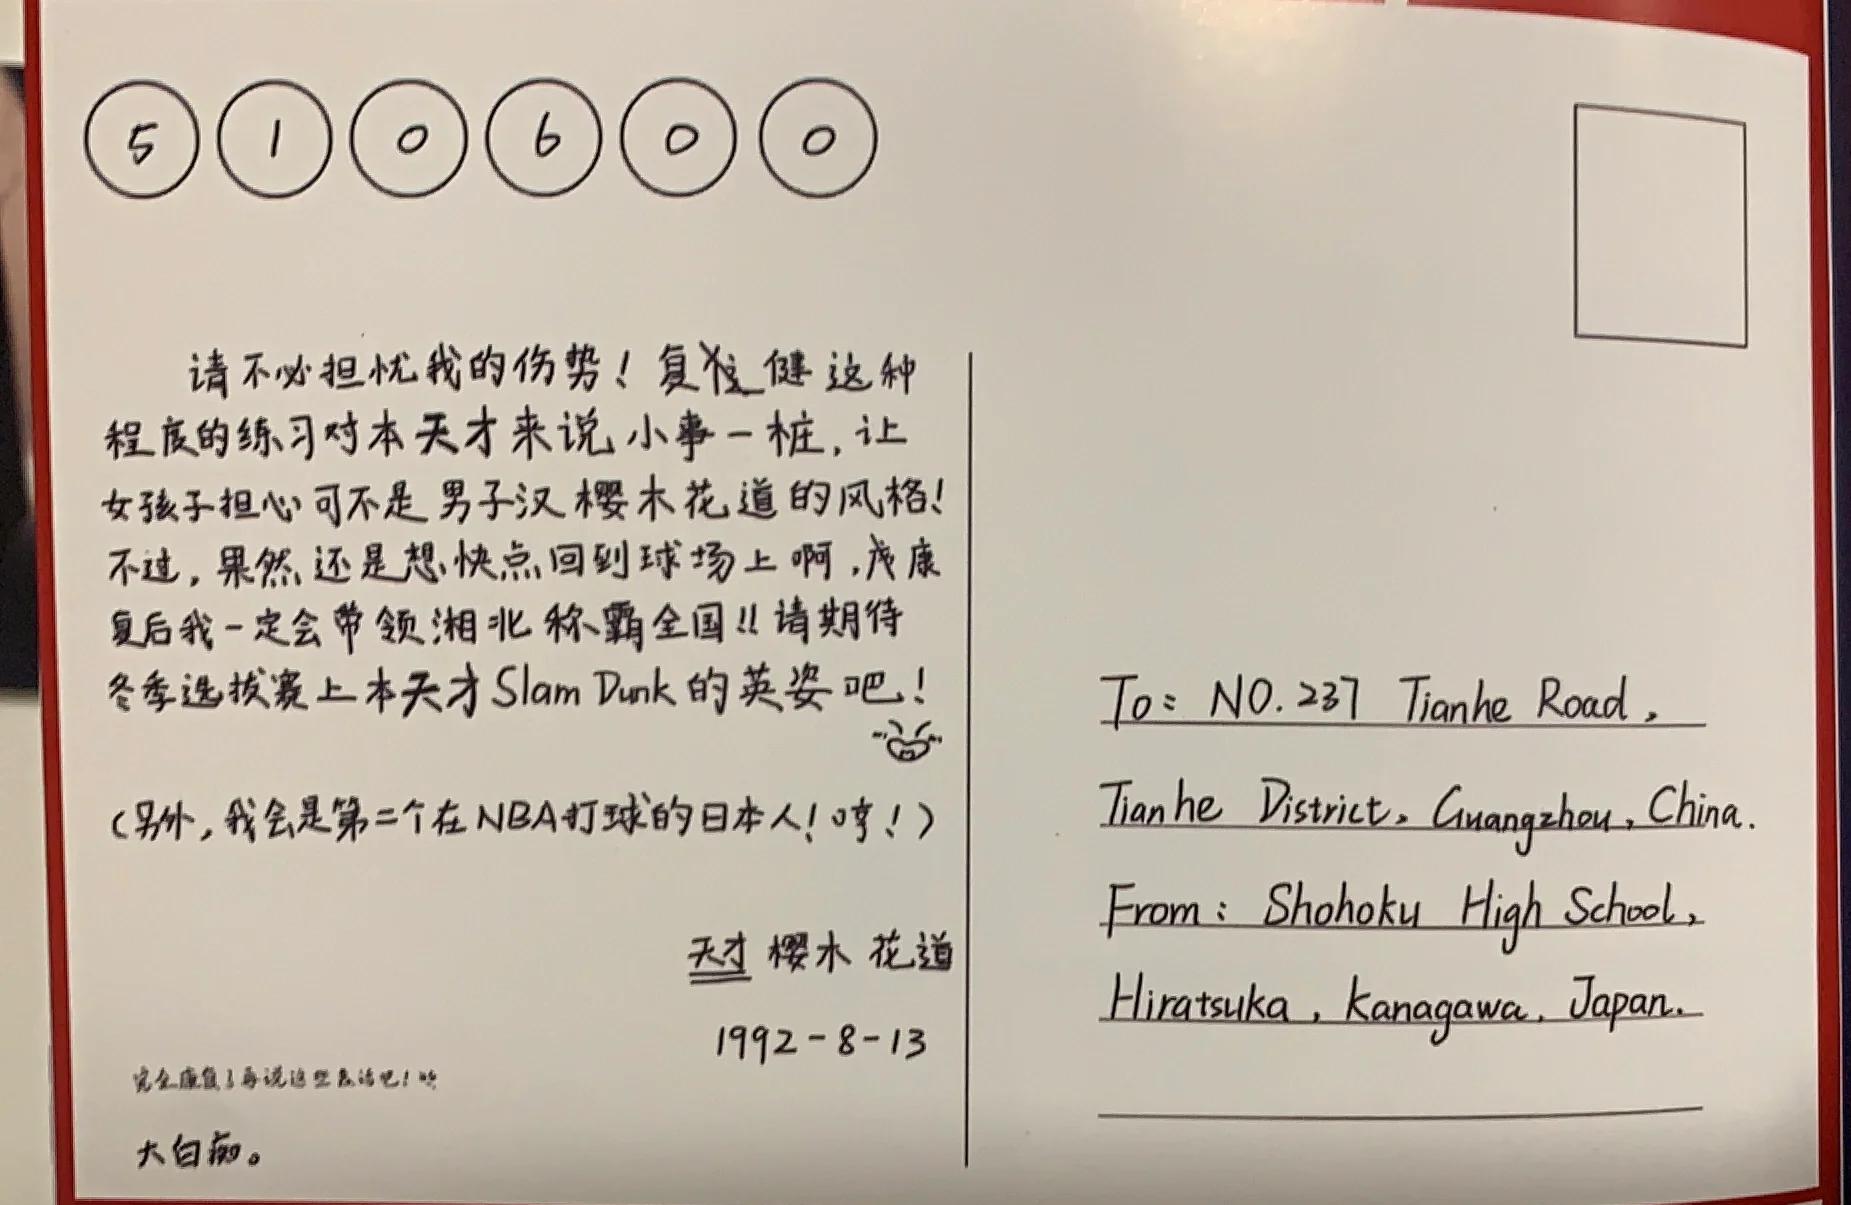 510600
请不必担忧我的伤势！复健这种
程度的练习对本天才来说小事一桩，让
女孩子担心可不是男子汉樱木花道的风格！
不过，果然还是想快点回到球场上啊，康
复后我一定会带领湘北称霸全国!!请期待
冬季选拔赛上本天才Slam Dunk的英姿吧！
（另外，我会是第二个在NBA打球的日本人！哼！）
天才 樱木 花道
1992-8-13
完全康复了再说这些息话吧！
大白痴。
To: NO.237 Tianhe Road,
Tianhe District, Guangzhou, China.
From: Shohoku High School,
Hiratsuka, Kanagawa, Japan.